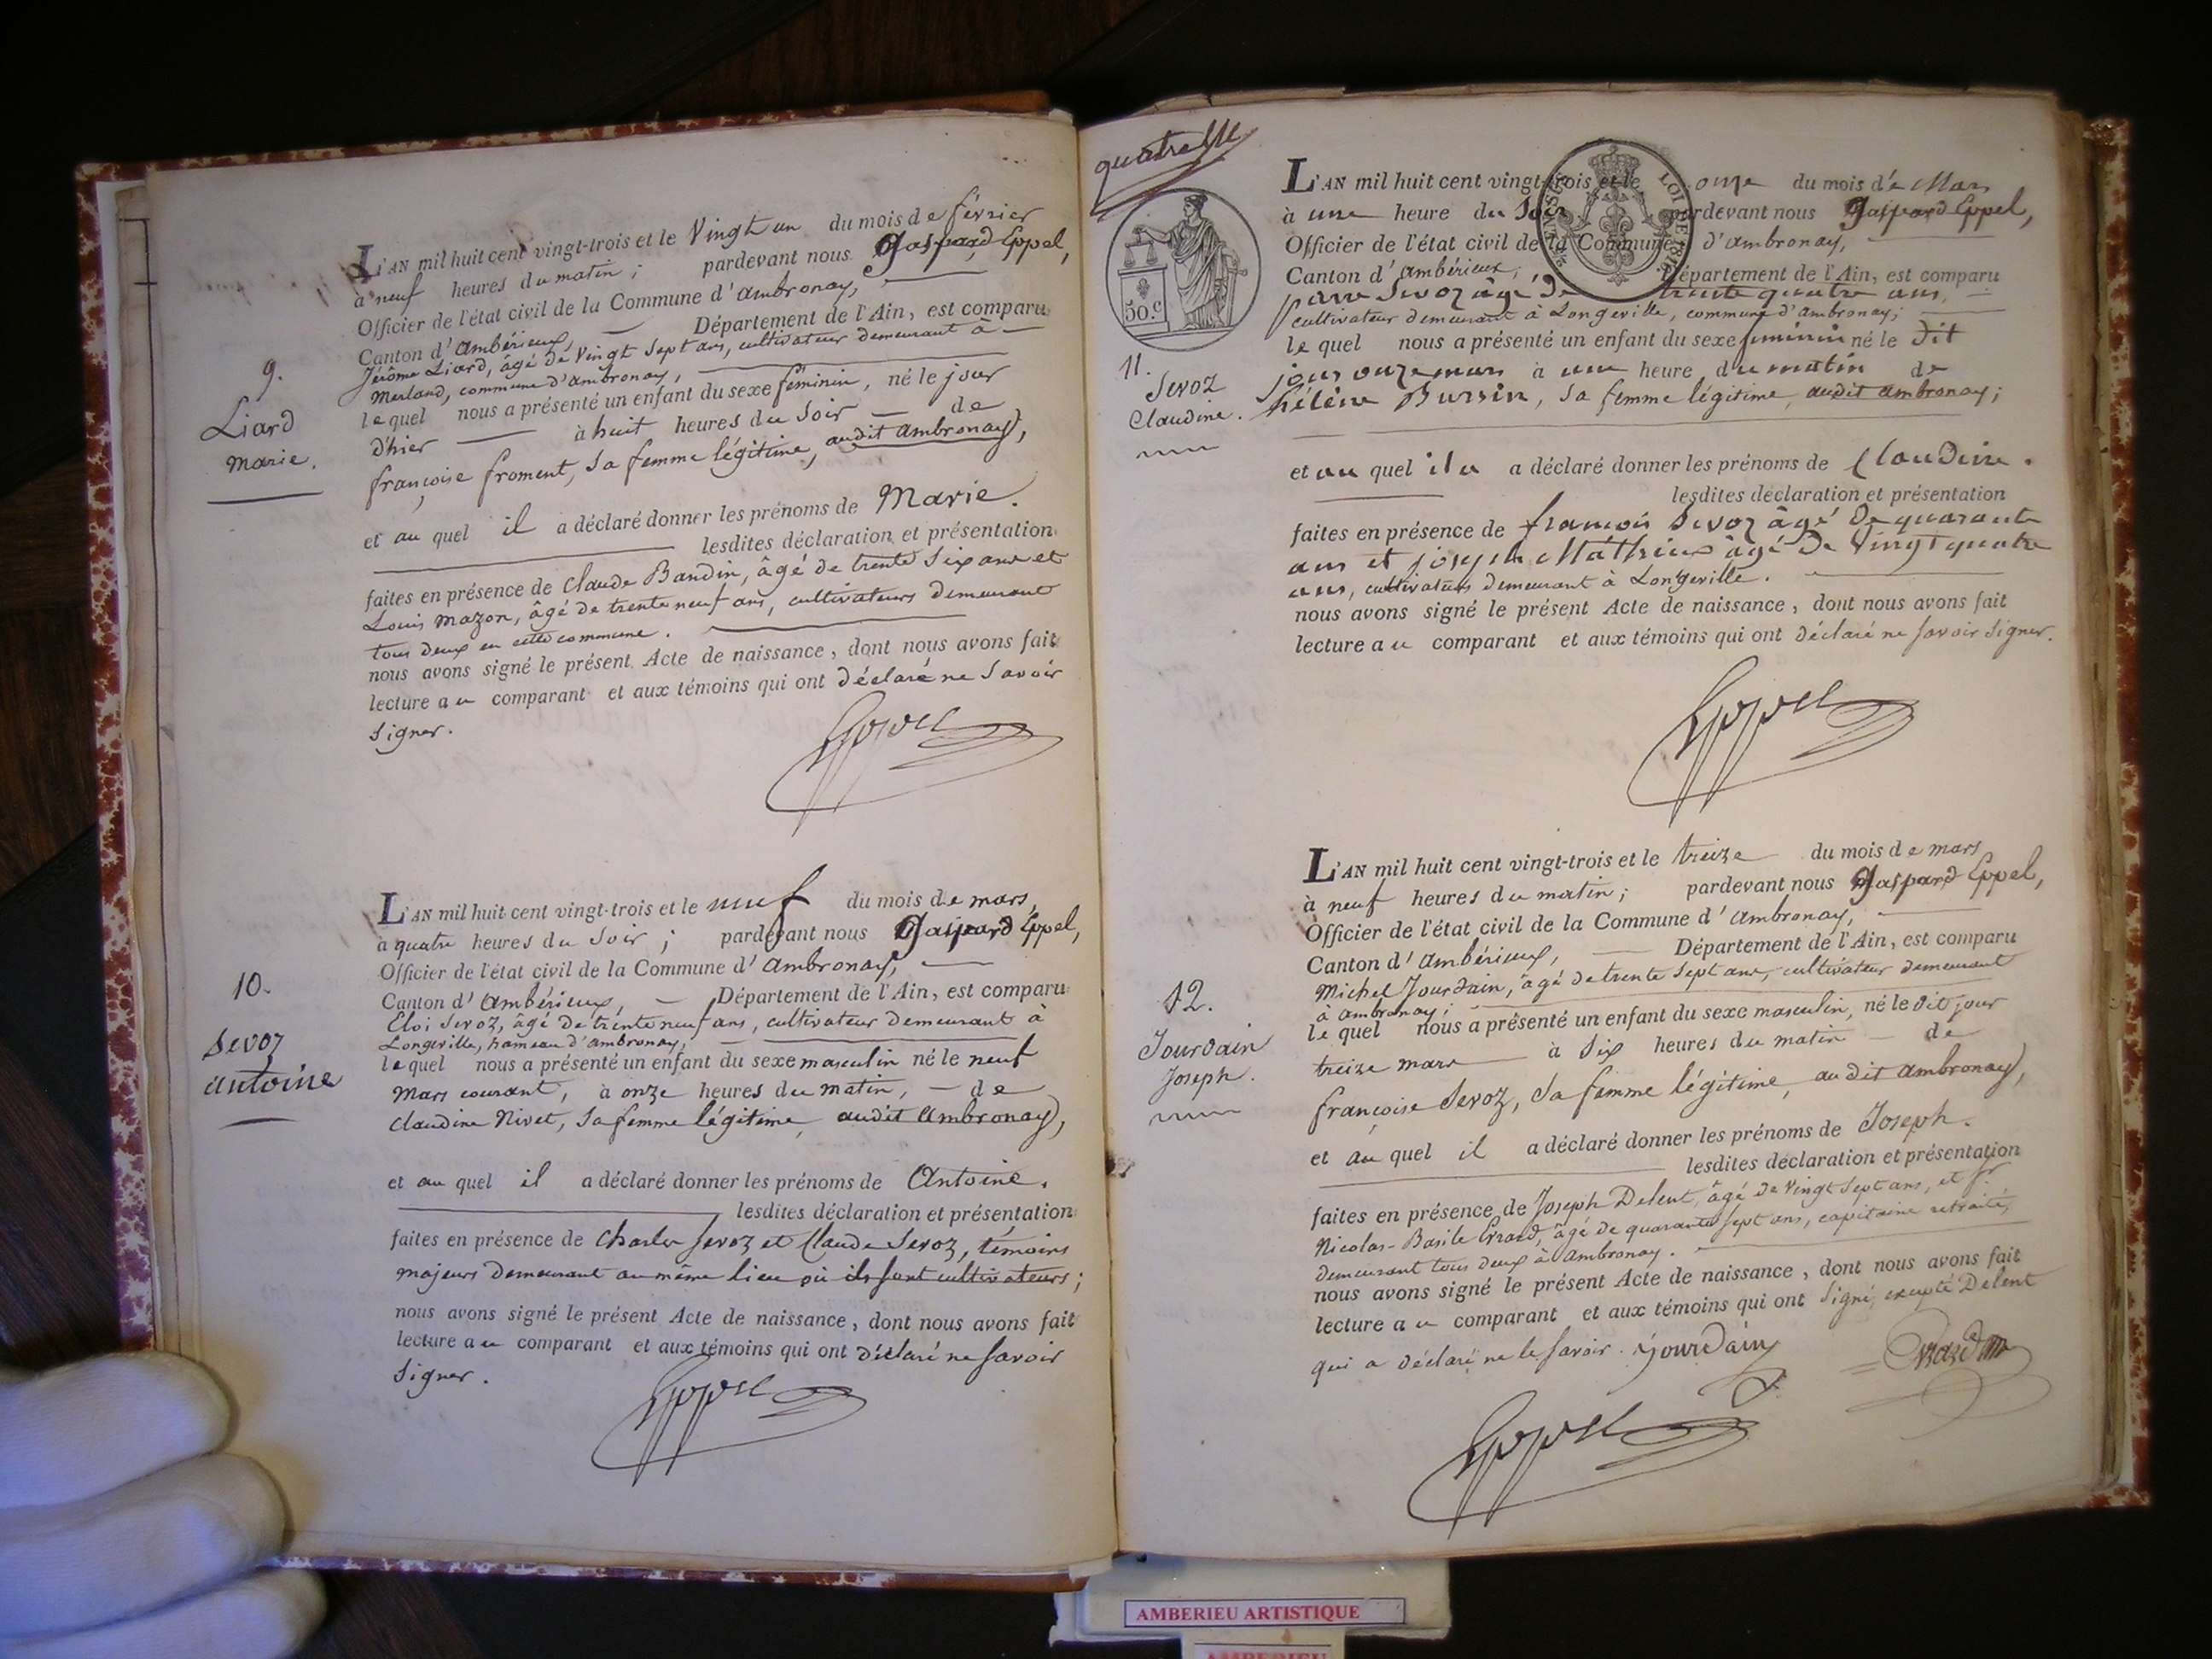 9.
Liard
marie.
L'AN mil huit cent vingt-trois et le vingt un du mois de février
à neuf heures du matin ; pardevant nous Gaspard Eppel,
Officier de l'état civil de la Commune d'ambronay,
Canton d'ambérieux, Département de l'Ain, est comparu
Jérôme Liard, âgé de vingt sept ans, cultivateur demeurant à
merland, commune d'ambronay,
lequel nous a présenté un enfant du sexe féminin, né le jour
d'hier à huit heures du soir de
françoise froment, sa femme légitime, audit ambronay,
et au quel il a déclaré donner les prénoms de Marie.
lesdites déclaration et présentation
faites en présence de Claude Bandin, âgé de trente six ans et
Louis mazon, âgé de trente neuf ans, cultivateurs demeurant
tous deux en cette commune.
nous avons signé le présent Acte de naissance, dont nous avons fait
lecture au comparant et aux témoins qui ont déclaré ne savoir
signer.
Eppel
10.
Sevoz
antoine
L'AN mil huit cent vingt-trois et le neuf du mois de mars,
à quatre heures du soir ; pardevant nous Gaspard Eppel,
Officier de l'état civil de la Commune d'ambronay,
Canton d'ambérieux, Département de l'Ain, est comparu
Eloi Sevoz, âgé de trente neuf ans, cultivateur demeurant à
Longeville, hameau d'ambronay,
lequel nous a présenté un enfant du sexe masculin né le neuf
mars courant, à onze heures du matin, de
claudine Nivet, sa femme légitime audit ambronay,
et au quel il a déclaré donner les prénoms de Antoine.
lesdites déclaration et présentation
faites en présence de Charles Sevoz et Claude Sevoz, témoins
majeurs demeurant au même lieu où ils sont cultivateurs ;
nous avons signé le présent Acte de naissance, dont nous avons fait
lecture au comparant et aux témoins qui ont déclaré ne savoir
signer.
Eppel
50.c
LOI DE 1816
11.
Sevoz
Claudine.
L'AN mil huit cent vingt-trois et le onze du mois de Mars
à une heure du Soir pardevant nous Gaspard Eppel,
Officier de l'état civil de la Commune d'ambronay,
Canton d'ambérieux, Département de l'Ain, est comparu
pierre Sevoz âgé de trente quatre ans,
cultivateur demeurant à Longeville, commune d'ambronay ;
lequel nous a présenté un enfant du sexe féminin né le dit
jour onze mars à une heure du matin de
hélène Bursin, sa femme légitime, audit ambronay ;
et au quel il a a déclaré donner les prénoms de Claudine.
lesdites déclaration et présentation
faites en présence de francois Sevoz âgé de quarante
ans et joseph Mathieu âgé de vingt quatre
ans, cultivateurs demeurant à Longeville.
nous avons signé le présent Acte de naissance, dont nous avons fait
lecture au comparant et aux témoins qui ont déclaré ne savoir signer.
Eppel
12.
Jourdain
Joseph.
L'AN mil huit cent vingt-trois et le treize du mois de mars
à neuf heures du matin ; pardevant nous Gaspard Eppel,
Officier de l'état civil de la Commune d'ambronay,
Canton d'ambérieux, Département de l'Ain, est comparu
Michel Jourdain, âgé de trente sept ans, cultivateur demeurant
à ambronay ;
lequel nous a présenté un enfant du sexe masculin, né le dit jour
treize mars à six heures du matin de
françoise Sevoz, sa femme légitime audit ambronay,
et au quel il a déclaré donner les prénoms de Joseph.
lesdites déclaration et présentation
faites en présence de Joseph Delent, âgé de vingt sept ans, et Sr.
Nicolas-Basile Erard, âgé de quarante sept ans, capitaine retraité,
demeurant tous deux à ambronay.
nous avons signé le présent Acte de naissance, dont nous avons fait
lecture au comparant et aux témoins qui ont signé, excepté Delent
qui a déclaré ne le savoir. Jourdain Erard
Eppel
AMBERIEU ARTISTIQUE
AMBERIEU